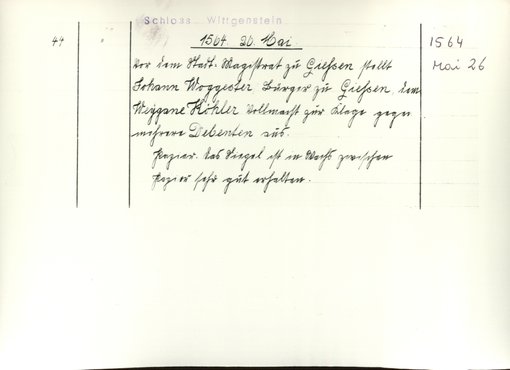 Schloss Wittgenstein
44 " 1564. 26. Mai. 1564
Mai 26
Vor dem Stadt-Magistrat zu Giessen stellt
Johann Bürger zu Giessen, dem
Köhler Vollmacht zur Klage gegen
mehrere Debenten aus.
Papier. Das Siegel ist in Wachs zwischen
Papier sehr gut erhalten.